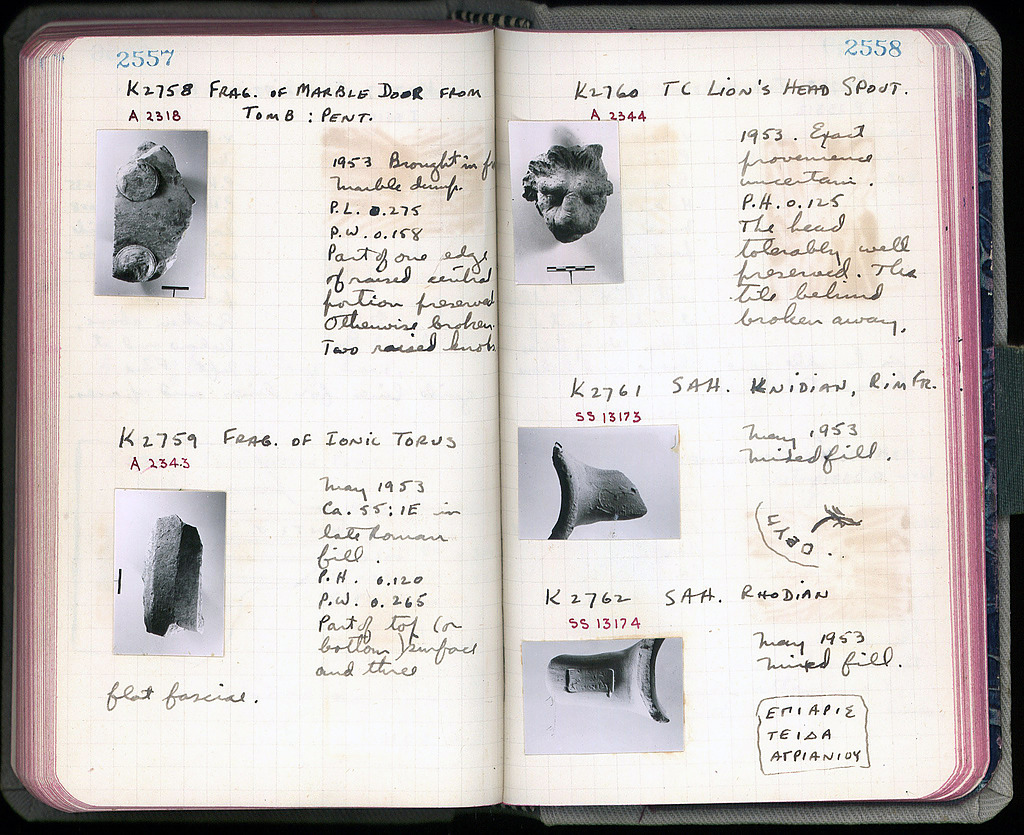 2557
K2758 FRAG. OF MARBLE DOOR FROM
TOMB : PENT.
A 2318
1953 Brought in
Marble dump.
P.L. 0.275
P.W. 0.158
Part of one edge
of raised central
portion preserved
Otherwise broken.
Two raised knobs
K2759 FRAG. OF IONIC TORUS
A 2343
May 1953
Ca. 55:ΙΕ in
late Roman
fill.
P.H. 0.120
P.W. 0.265
Part of top (or
bottom) surface
and three
flat fasciae.
2558
K2760 TC LION'S HEAD SPOUT.
A 2344
1953. Exact
provenience
uncertain.
P.H. 0.125
The head
tolerably well
preserved. The
tile behind
broken away.
K2761 SAH. KNIDIAN, RIM FR.
SS 13173
May 1953
Mixed fill.
K2762 SAH. RHODIAN
SS 13174
May 1953
Mixed fill.
ΕΠΙΑΡΙΣ
ΤΕΙΔΑ
ΑΓΡΙΑΝΙΟΥ